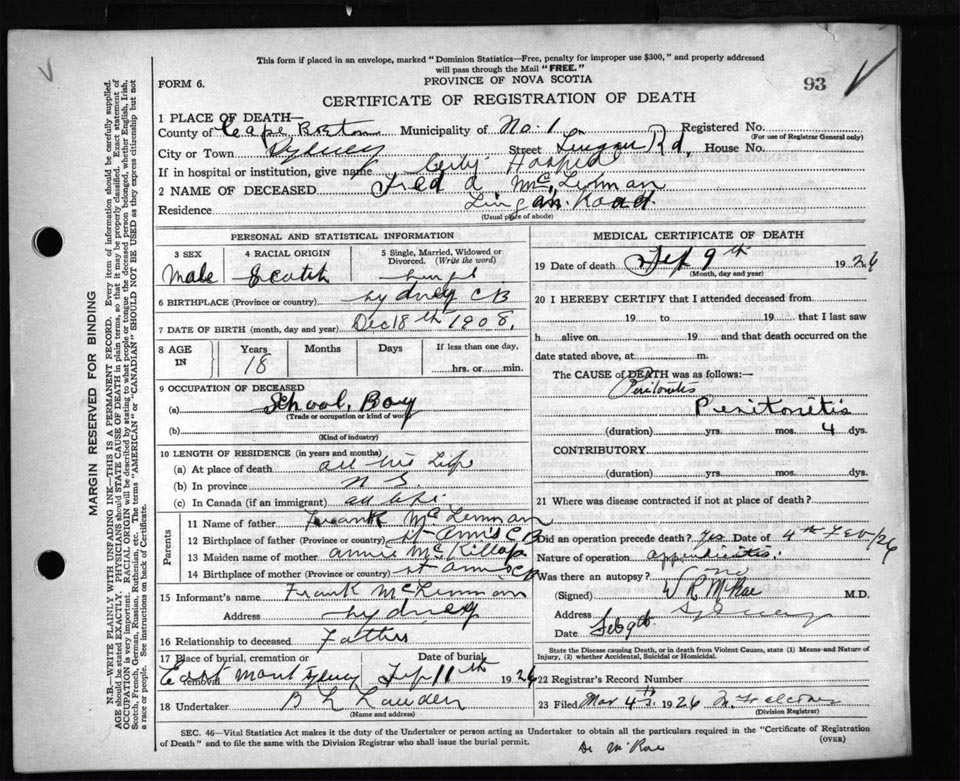 This form if placed in an envelope, marked "Dominion Statistics—Free, penalty for improper use $300," and properly addressed
will pass through the Mail "FREE."
FORM 6.
PROVINCE OF NOVA SCOTIA
93
CERTIFICATE OF REGISTRATION OF DEATH
1 PLACE OF DEATH—
County of Cape Breton Municipality of No. 1 Registered No.
(For use of Registrar General only)
City or Town Sydney Street Lingan Rd, House No.
If in hospital or institution, give name City Hospital
2 NAME OF DECEASED Fred A. McLennan
Residence Lingan Road
(Usual place of abode)
PERSONAL AND STATISTICAL INFORMATION
3 SEX Male
4 RACIAL ORIGIN Scotch
5 Single, Married, Widowed or Divorced. (Write the word) Single
6 BIRTHPLACE (Province or country) Sydney CB
7 DATE OF BIRTH (month, day and year) Dec 18th 1908.
8 AGE IN Years 18 Months Days If less than one day, hrs. or min.
9 OCCUPATION OF DECEASED
(a) School Boy
(Trade or occupation or kind of work)
(b)
(Kind of industry)
10 LENGTH OF RESIDENCE (in years and months)
(a) At place of death all his life
(b) In province N S.
(c) In Canada (if an immigrant) all life.
Parents
11 Name of father Frank McLennan
12 Birthplace of father (Province or country) St Ann's CB
13 Maiden name of mother Annie McKillop
14 Birthplace of mother (Province or country) St Anns CB
15 Informant's name Frank McLennan
Address Sydney
16 Relationship to deceased Father
17 Place of burial, cremation or removal East Mount Sydney Date of burial Feb 11th 1926
18 Undertaker B L Lawden
(Name and address)
MEDICAL CERTIFICATE OF DEATH
19 Date of death Feb 9th 1926
(Month, day and year)
20 I HEREBY CERTIFY that I attended deceased from
19 to 19 that I last saw
h alive on 19 and that death occurred on the
date stated above, at m.
The CAUSE of DEATH was as follows:—
Peritonitis
Peritonitis
(duration) yrs. mos. 4 dys.
CONTRIBUTORY
(duration) yrs. mos. dys.
21 Where was disease contracted if not at place of death?
Did an operation precede death? Yes Date of 4th Feb/26
Nature of operation appendicites.
Was there an autopsy? no
(Signed) W R McRae M.D.
Address Sydney
Date Feb 9th
State the Disease causing Death, or in death from Violent Causes, state (1) Means and Nature of
Injury, (2) whether Accidental, Suicidal or Homicidal.
22 Registrar's Record Number
23 Filed Mar 4th 1926
(Division Registrar)
SEC. 46—Vital Statistics Act makes it the duty of the Undertaker or person acting as Undertaker to obtain all the particulars required in the "Certificate of Registration
of Death" and to file the same with the Division Registrar who shall issue the burial permit.
(OVER)
Dr McRae
MARGIN RESERVED FOR BINDING
N.B.—WRITE PLAINLY WITH UNFADING INK—THIS IS A PERMANENT RECORD. Every item of information should be carefully supplied.
AGE should be stated EXACTLY. PHYSICIANS should STATE CAUSE OF DEATH in plain terms, so that it may be properly classified. Exact statement of
OCCUPATION is very important. RACIAL ORIGIN will be described by stating to what people or tongue the deceased person belonged, whether English, Irish,
Scotch, French, German, Russian, Ruthenian, etc. The terms "AMERICAN" or "CANADIAN" SHOULD NOT BE USED as they express citizenship but not
a race or people. See instructions on back of Certificate.